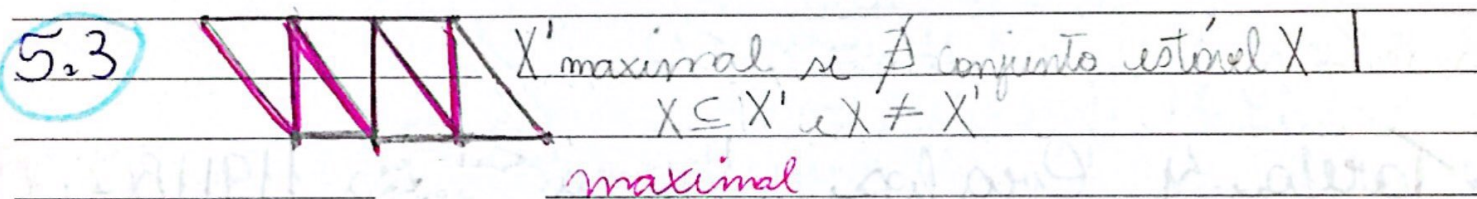 5.3 X' maximal se ∄ conjunto estável X |
X ⊆ X' e X ≠ X'
maximal